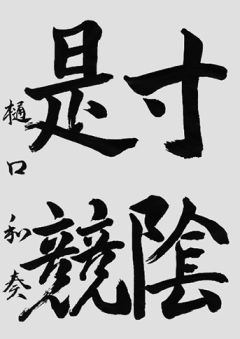 寸陰
是競
樋口和奏